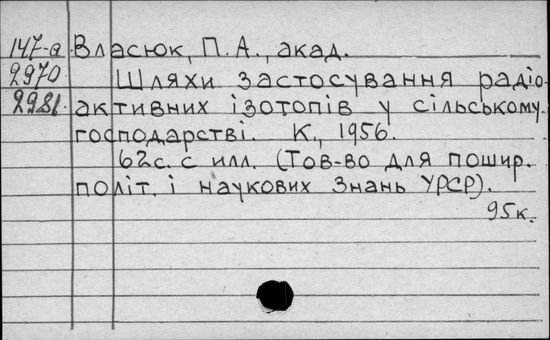 147-а Власюк, П.А., акад.
2970 Шляхи застосування радіо-
2981. активних ізотопів у сільському
господарстві. К., 1956.
62с. с илл. (Тов-во для пошир.
політ. і наукових знань УРСР).
95к.